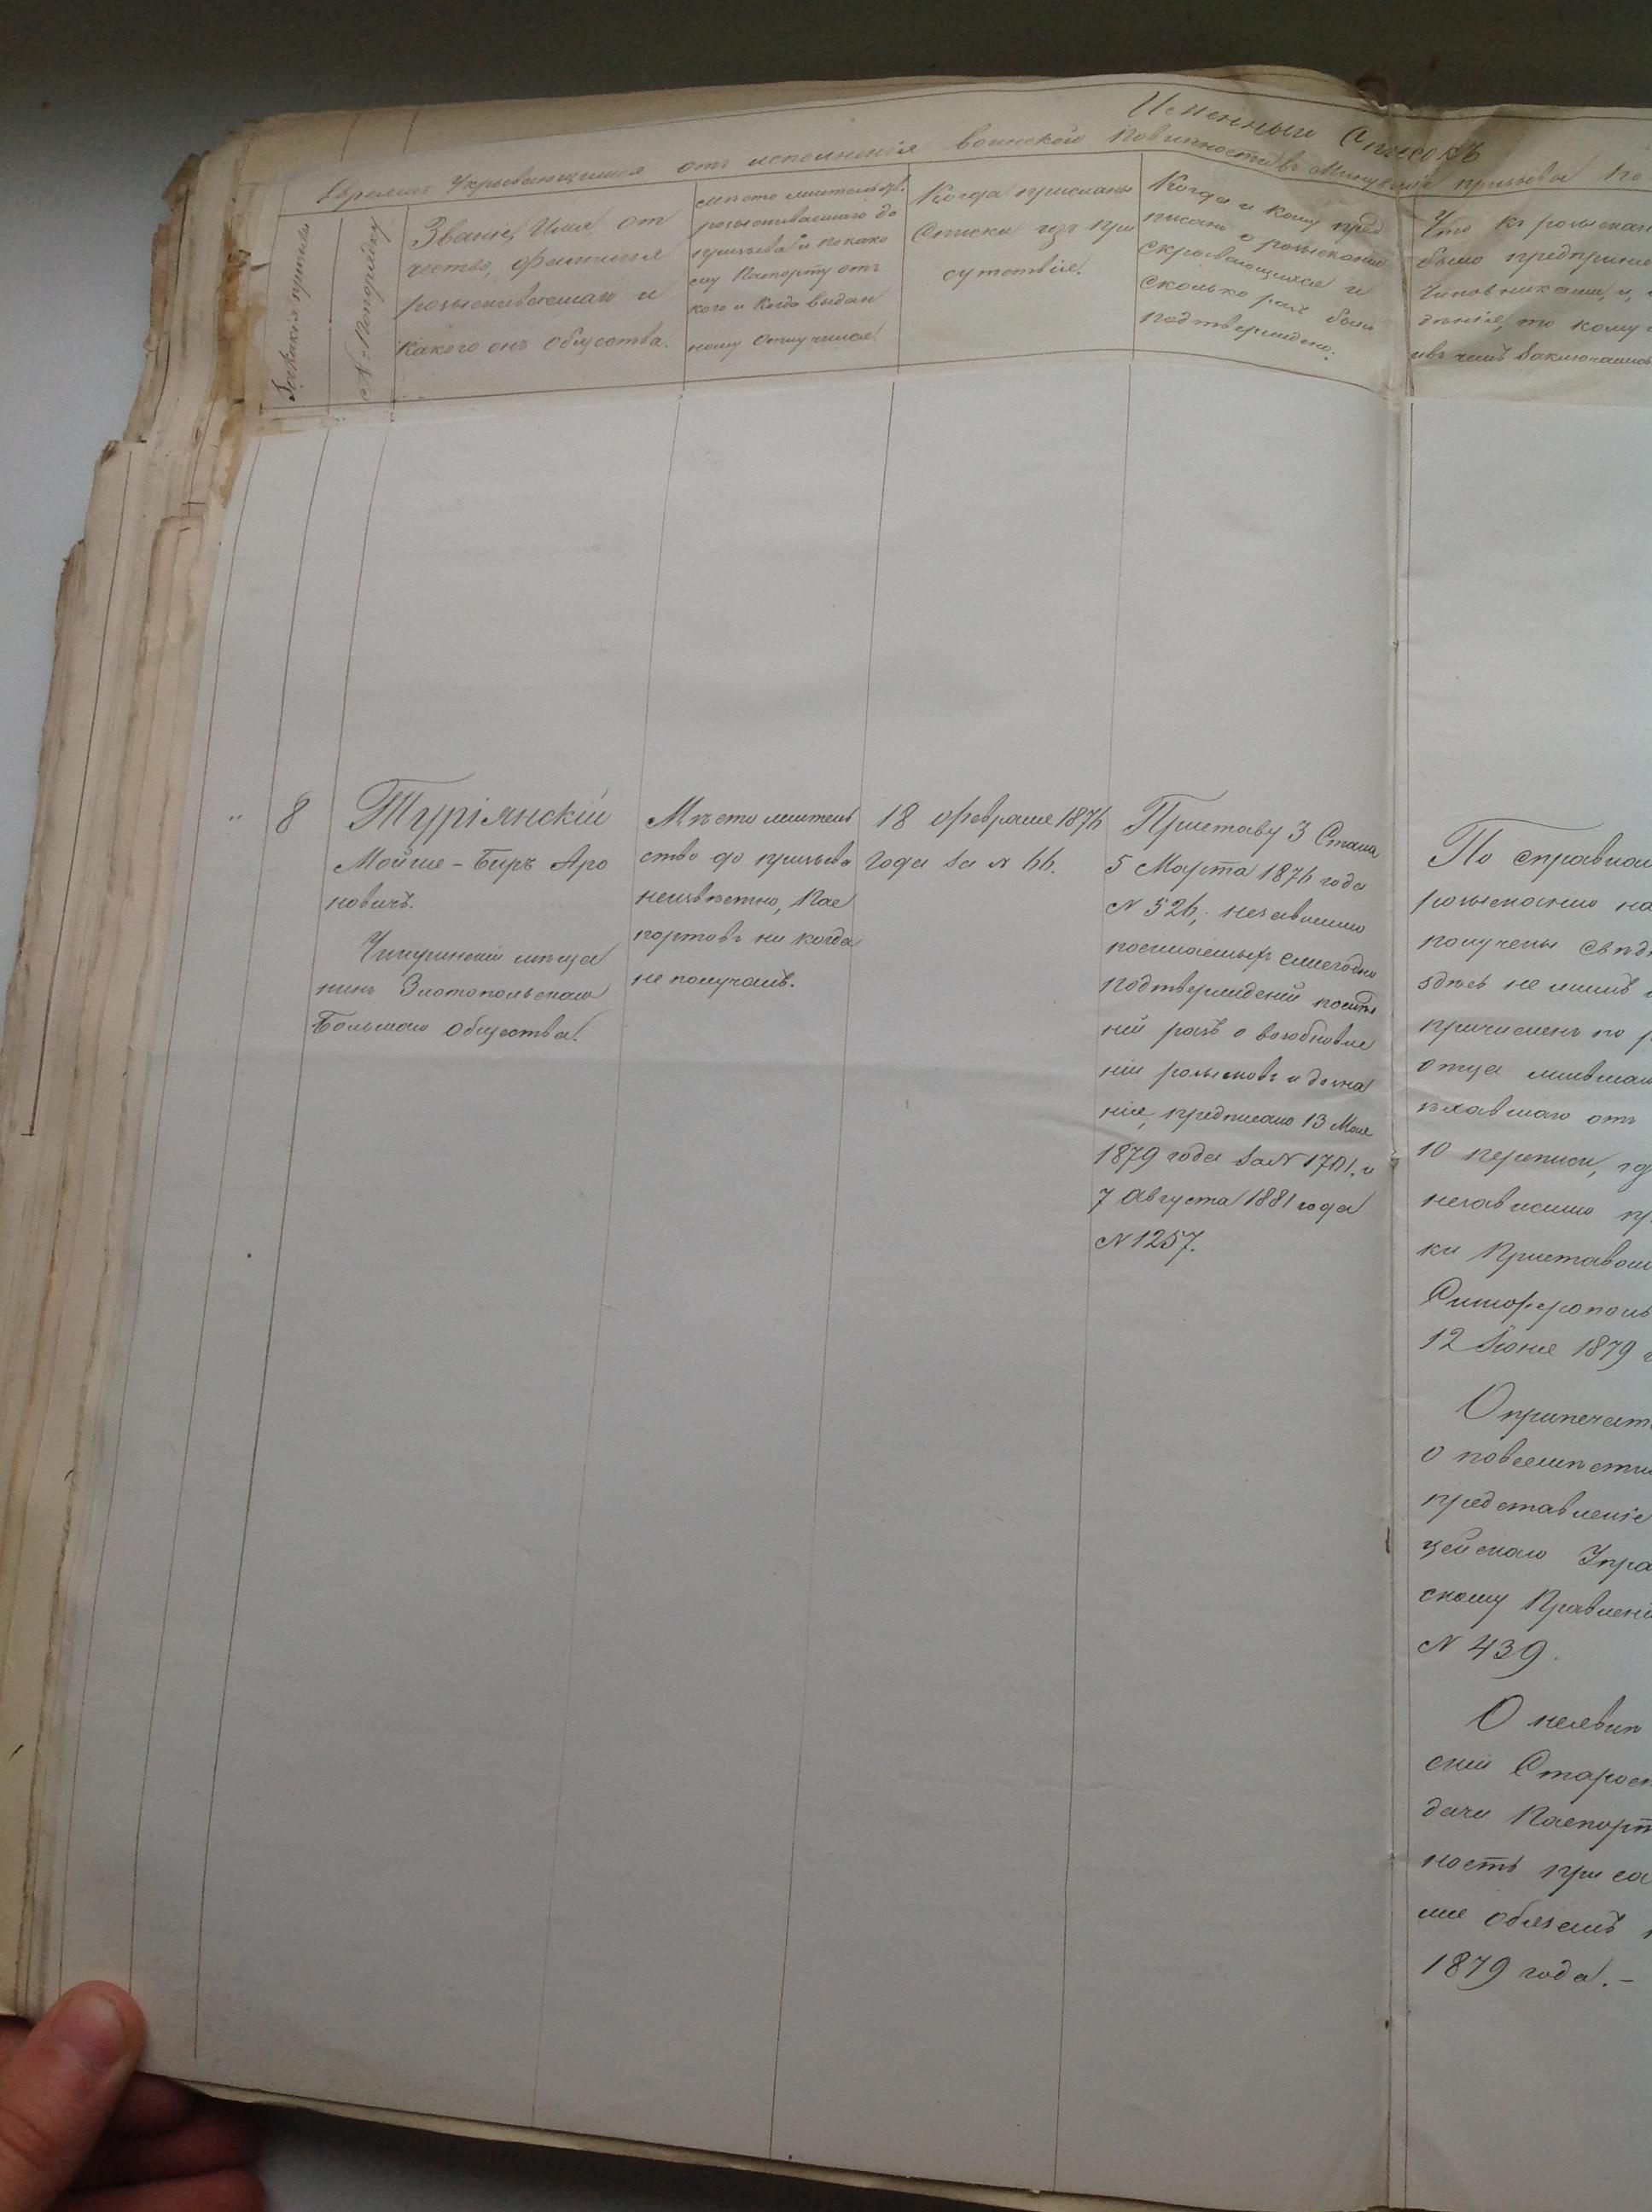 Именный Списокъ
Евреямъ Укрывающимся отъ исполненія воинской повинности въ Минувшіе призывы по
За какіе призывы
№ по порядку
Званіе, Имя, от
чество, фамилія
розыскиваемаго и
Какого онъ общества.
Место жительства
розыскиваемаго до
призыва и по како
му Паспорту отъ
кого и когда выдан
ному отлучился.
Когда присланы
Списки изъ При
сутствія.
Когда и кому пред
писано о розысканіи
скрывающихся и
сколько разъ было
подтверждено.
Что къ розыскан
было предприня
Чиновниками, и,
денія, то кому
и въ чемъ заключались
"
8
Турiянскiй
Мойше-Беръ Аро
новичъ.
Чигиринскій меща
нинъ Златопольскаго
Большаго общества.
Место житель
ство до призыва
неизвестно, Пас
портовъ ни когда
не получалъ.
18 Февраля 1876
года за № 66.
Приставу 3 Стана
5 Марта 1876 года
№ 526, независимо
посылаемыхъ ежегодно
подтвержденій послед
ній разъ о возобновле
ніи розысковъ и дозна
нія, предписано 13 Мая
1879 года за № 1701. и
7 Августа 1881 года
№ 1257.
По справкам
розысканію на
получены свед
здесь не жилъ
причисленъ по
отца жившаго
ехавшаго отъ
10 переписи,
независимо
ки Приставом
Симферополь
12 Іюня 1879
О припечат
о повсеместн
представленіе
цейскаго Упра
скому Правлені
№ 439.
О неявк
скій Старос
дачи Паспорт
ность при со
ше обязанъ
1879 года.-